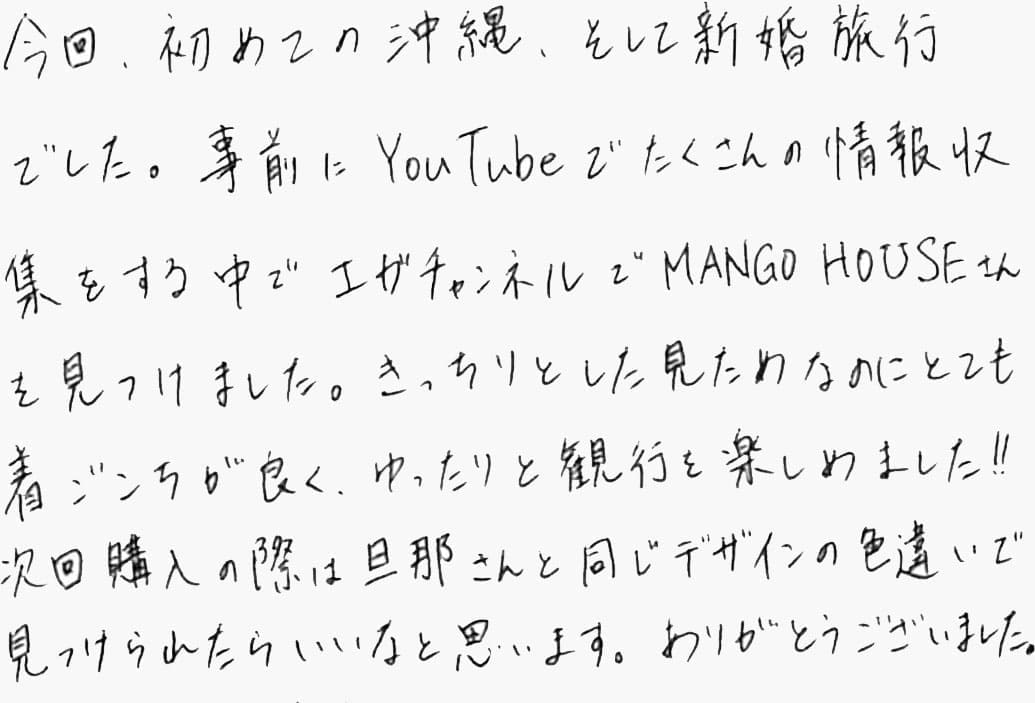 今回、初めての沖縄、そして新婚旅行
でした。事前にYouTubeでたくさんの情報収
集をする中でエガチャンネルでMANGO HOUSEさん
を見つけました。きっちりとした見ためなのにとても
着ゴンチが良く、ゆったりと観行を楽しめました!!
次回購入の際は旦那さんと同じデザインの色違いで
見つけられたらいいなと思います。ありがとうございました。